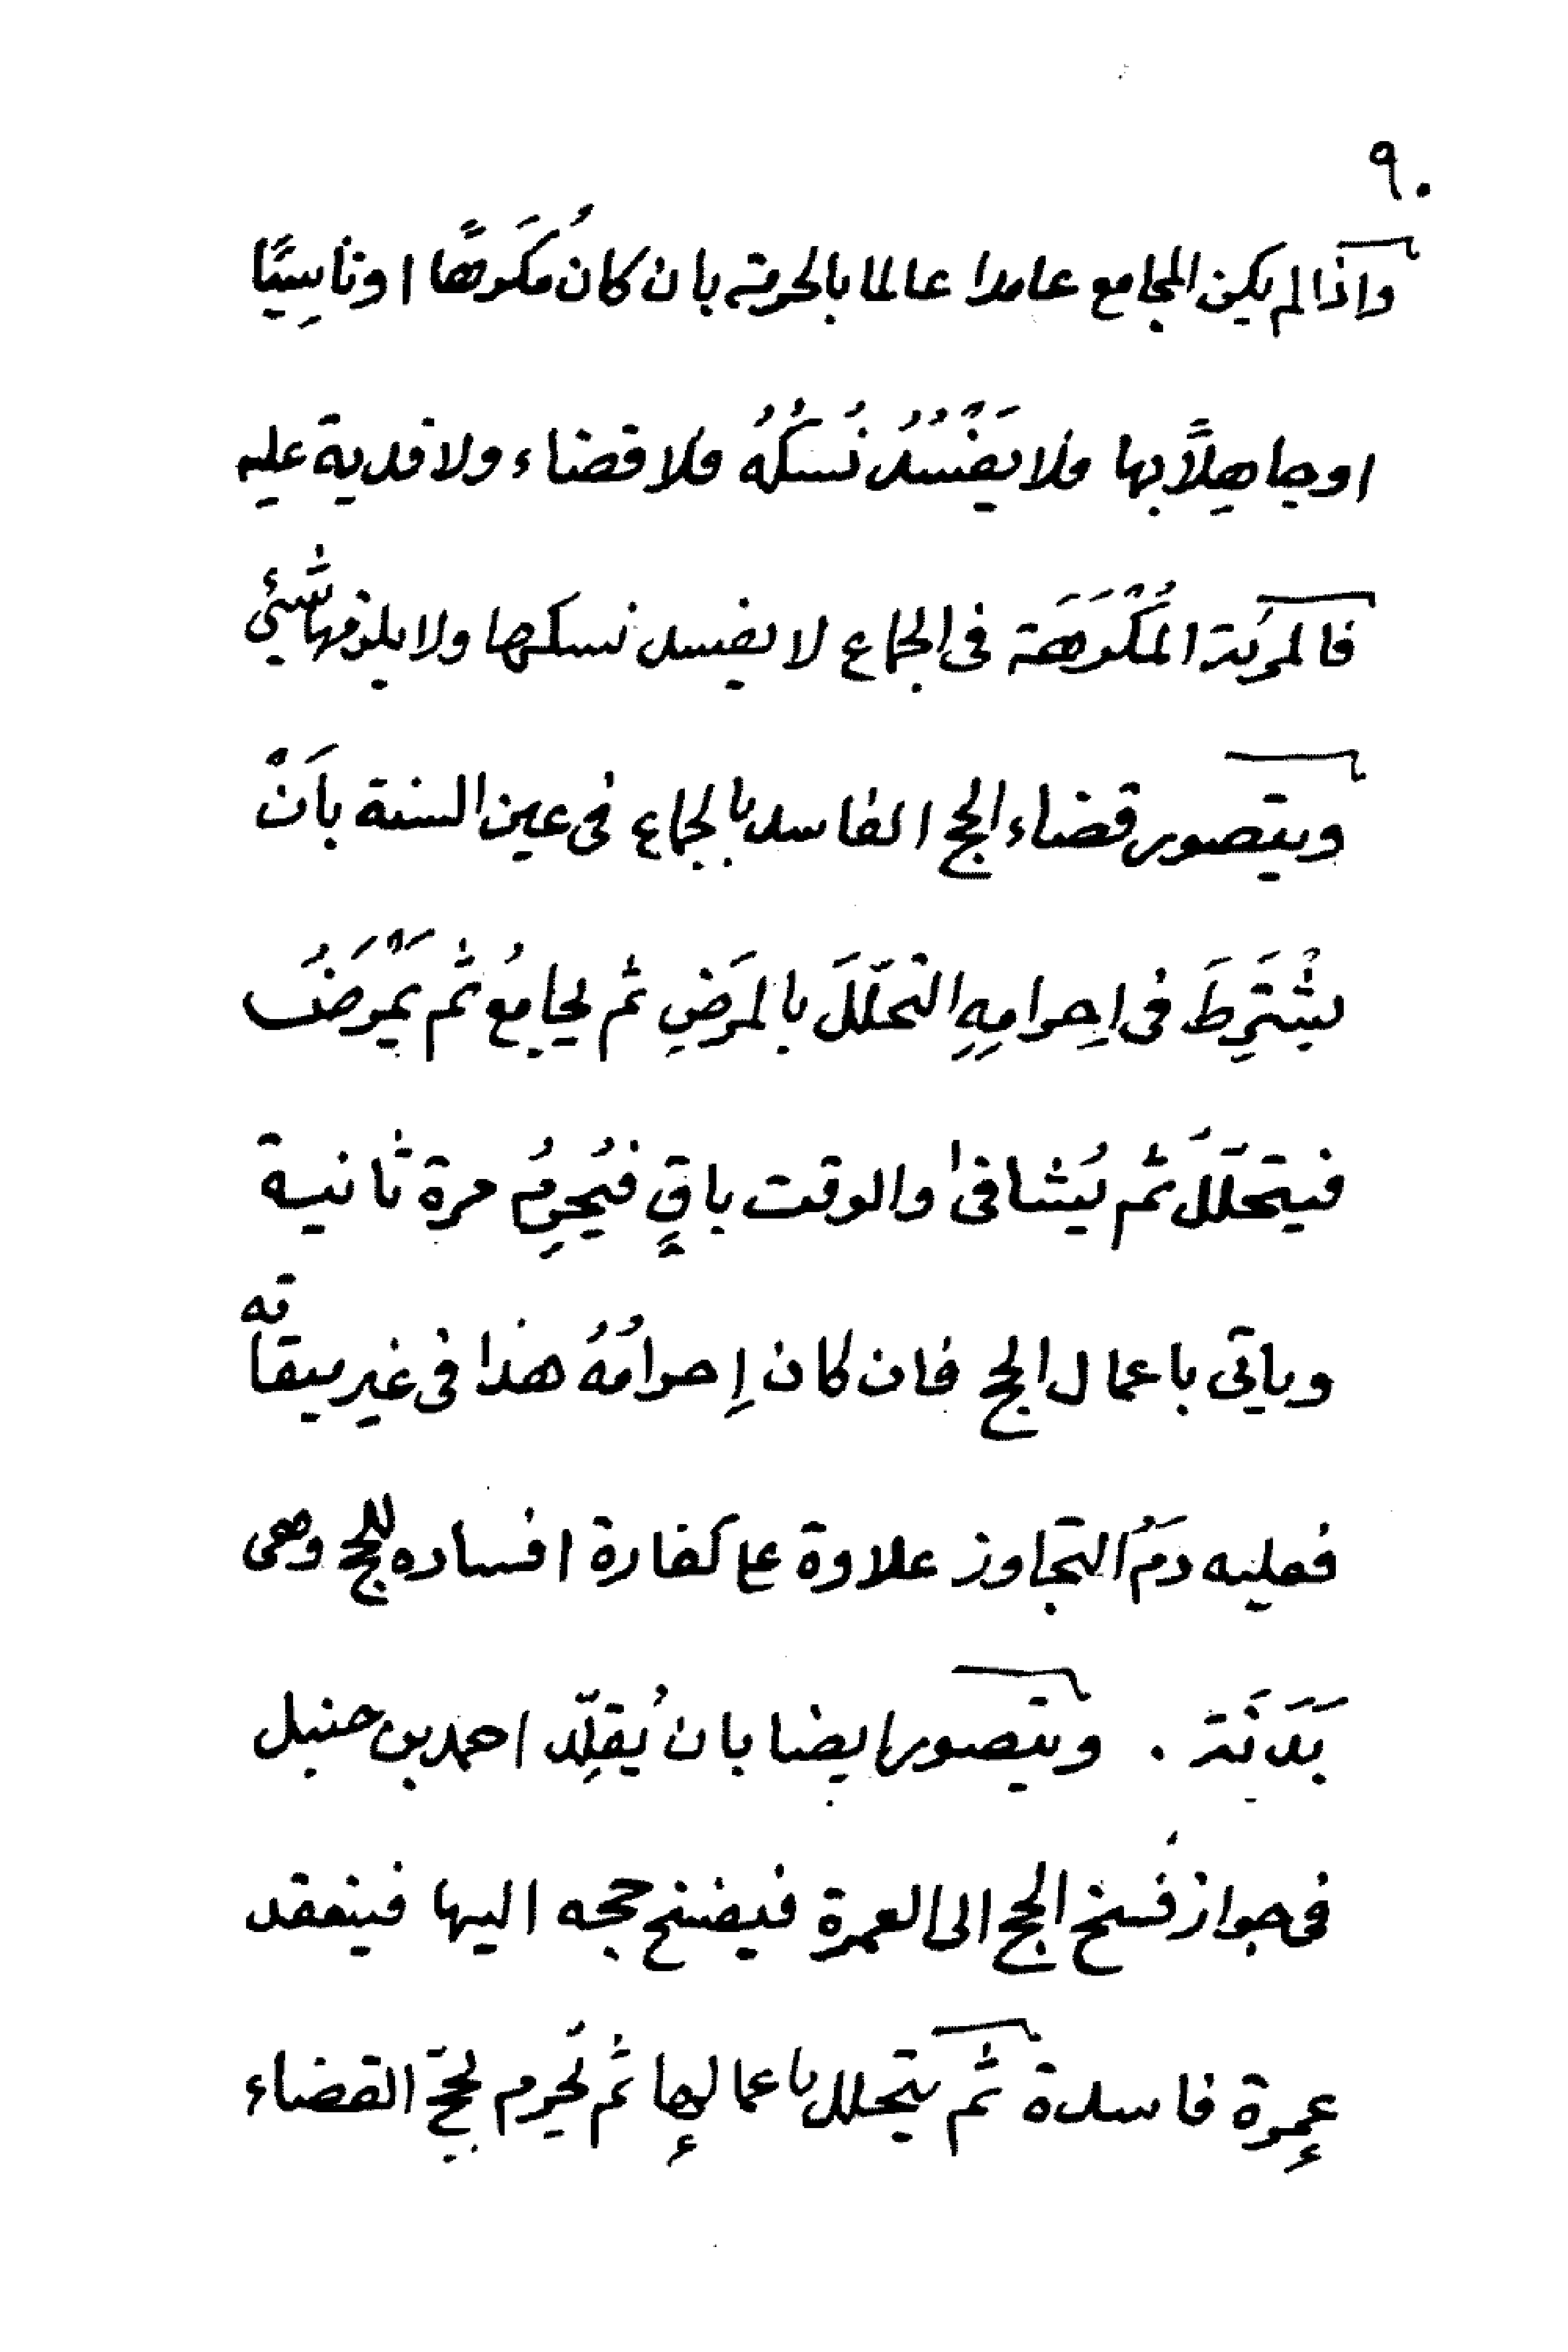 ٩٠
واذا لم يكن المجامع عامدا عالما بالحرمة بان كان مُكرَهًا او ناسِيًا
او جاهِلاً بها فلا يَفْسُدُ نُسُكُهُ فلا قضاء ولا فدية عليه
فالمرئة المُكْرَهَة فى الجماع لا يفسد نسكها ولا يلزمها شَيئ
ويتصور قضاء الحج الفاسد بالجماع فى عين السنة باَنْ
يشْتَرِطَ فى اِحِرامِهِ التحلّلَ بالمرَضِ ثم يجامِعُ ثم يَمْرَضُ
فيتحلّلَ ثم يُشافىٰ والوقت باقٍ فيُحرِمُ مرة ثانية
وياتى باعمال الحج فان كان إحرامُهُ هذا فى غير ميقاته
فعليه دَمُ التجاوز علاوة على كفارة افساده للحج وهى
بَدَنَة . ويتصور ايضا بان يُقلِّد احمد بن حنبل
فى جواز فَسخ الحج الى العمرة فيفسخ حجه اليها فينعقد
عمِرة فاسدة ثم يتحلل باعمالِها ثم يُحرم لحجّ القضاء